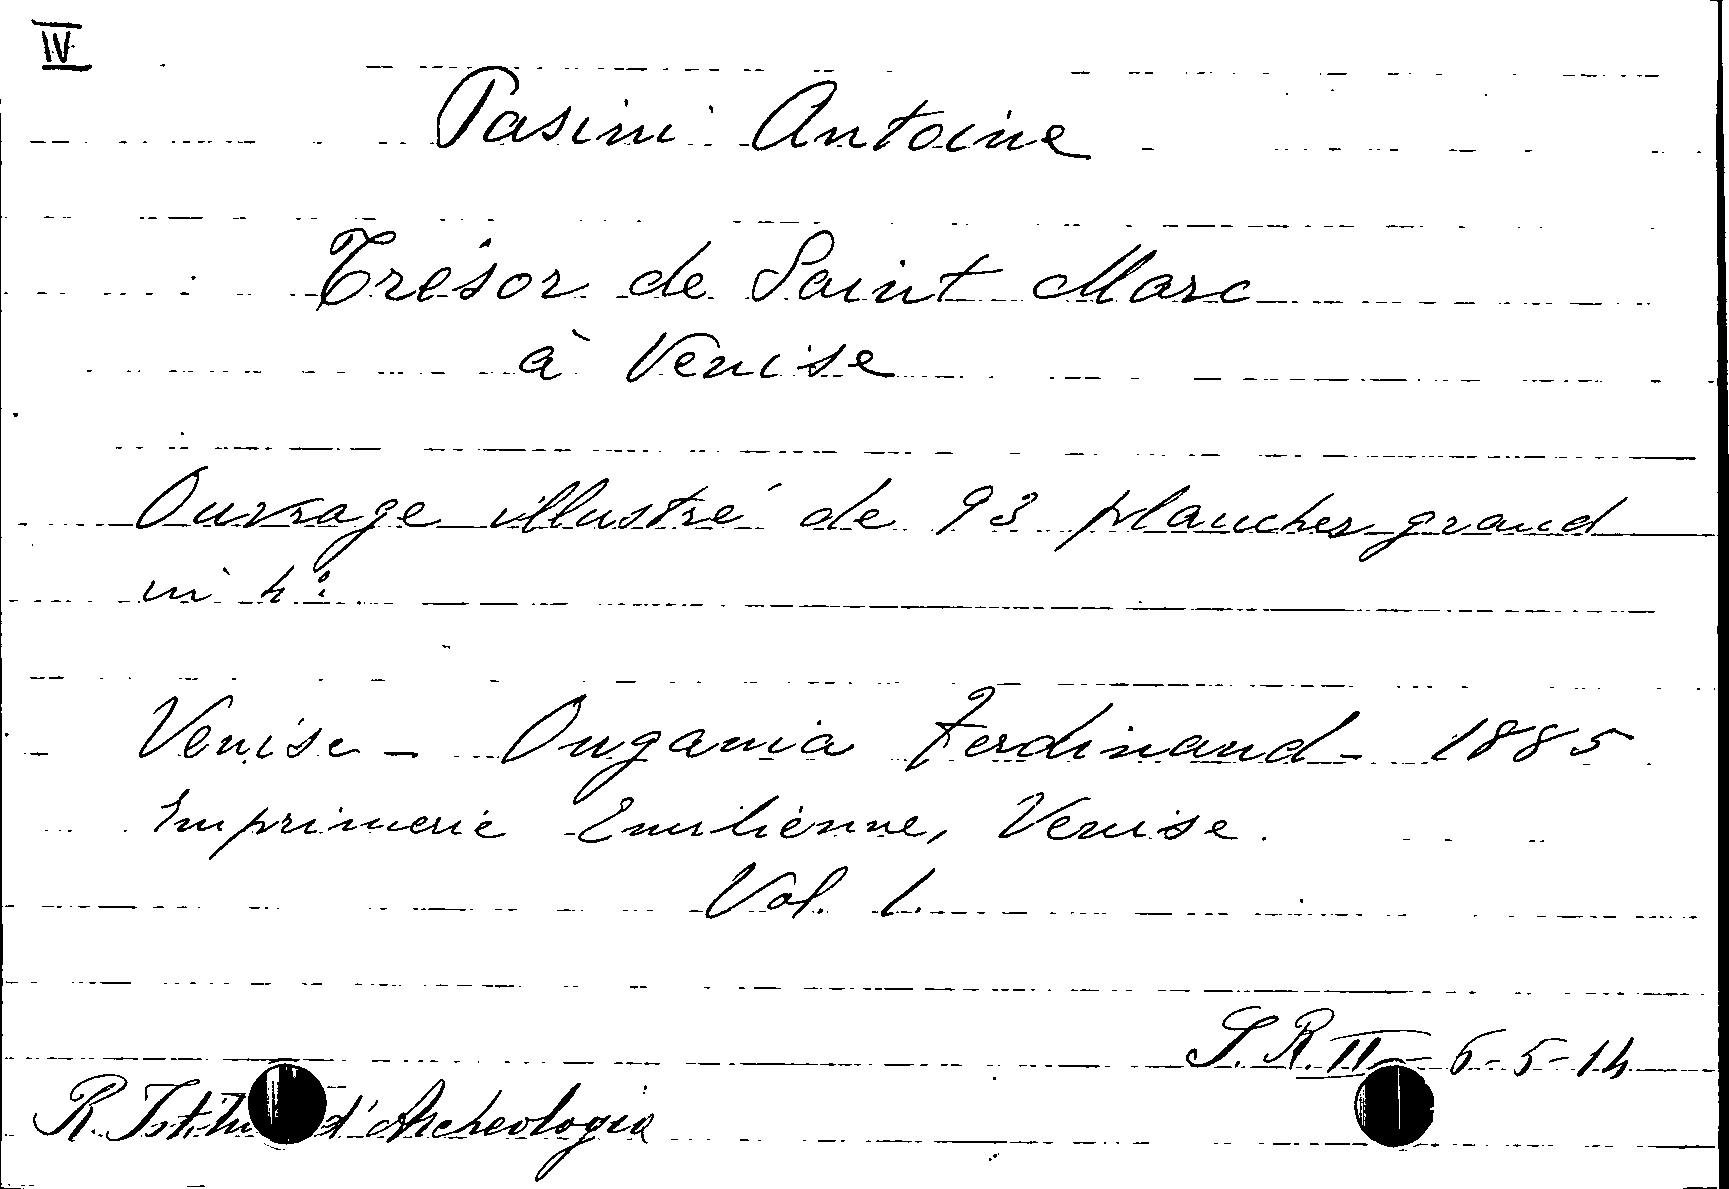 IV
Pasini Antoine
Trésor de Saint Marc
à Venise
Ouvrage illustré de 93 planches grand
in 4°.
Venise - Ongania Ferdinand - 1885
Imprimerie Emilienne, Venise.
Vol. 1.
S. R. II - 6-5-14
R. Istitu d'Archeologia